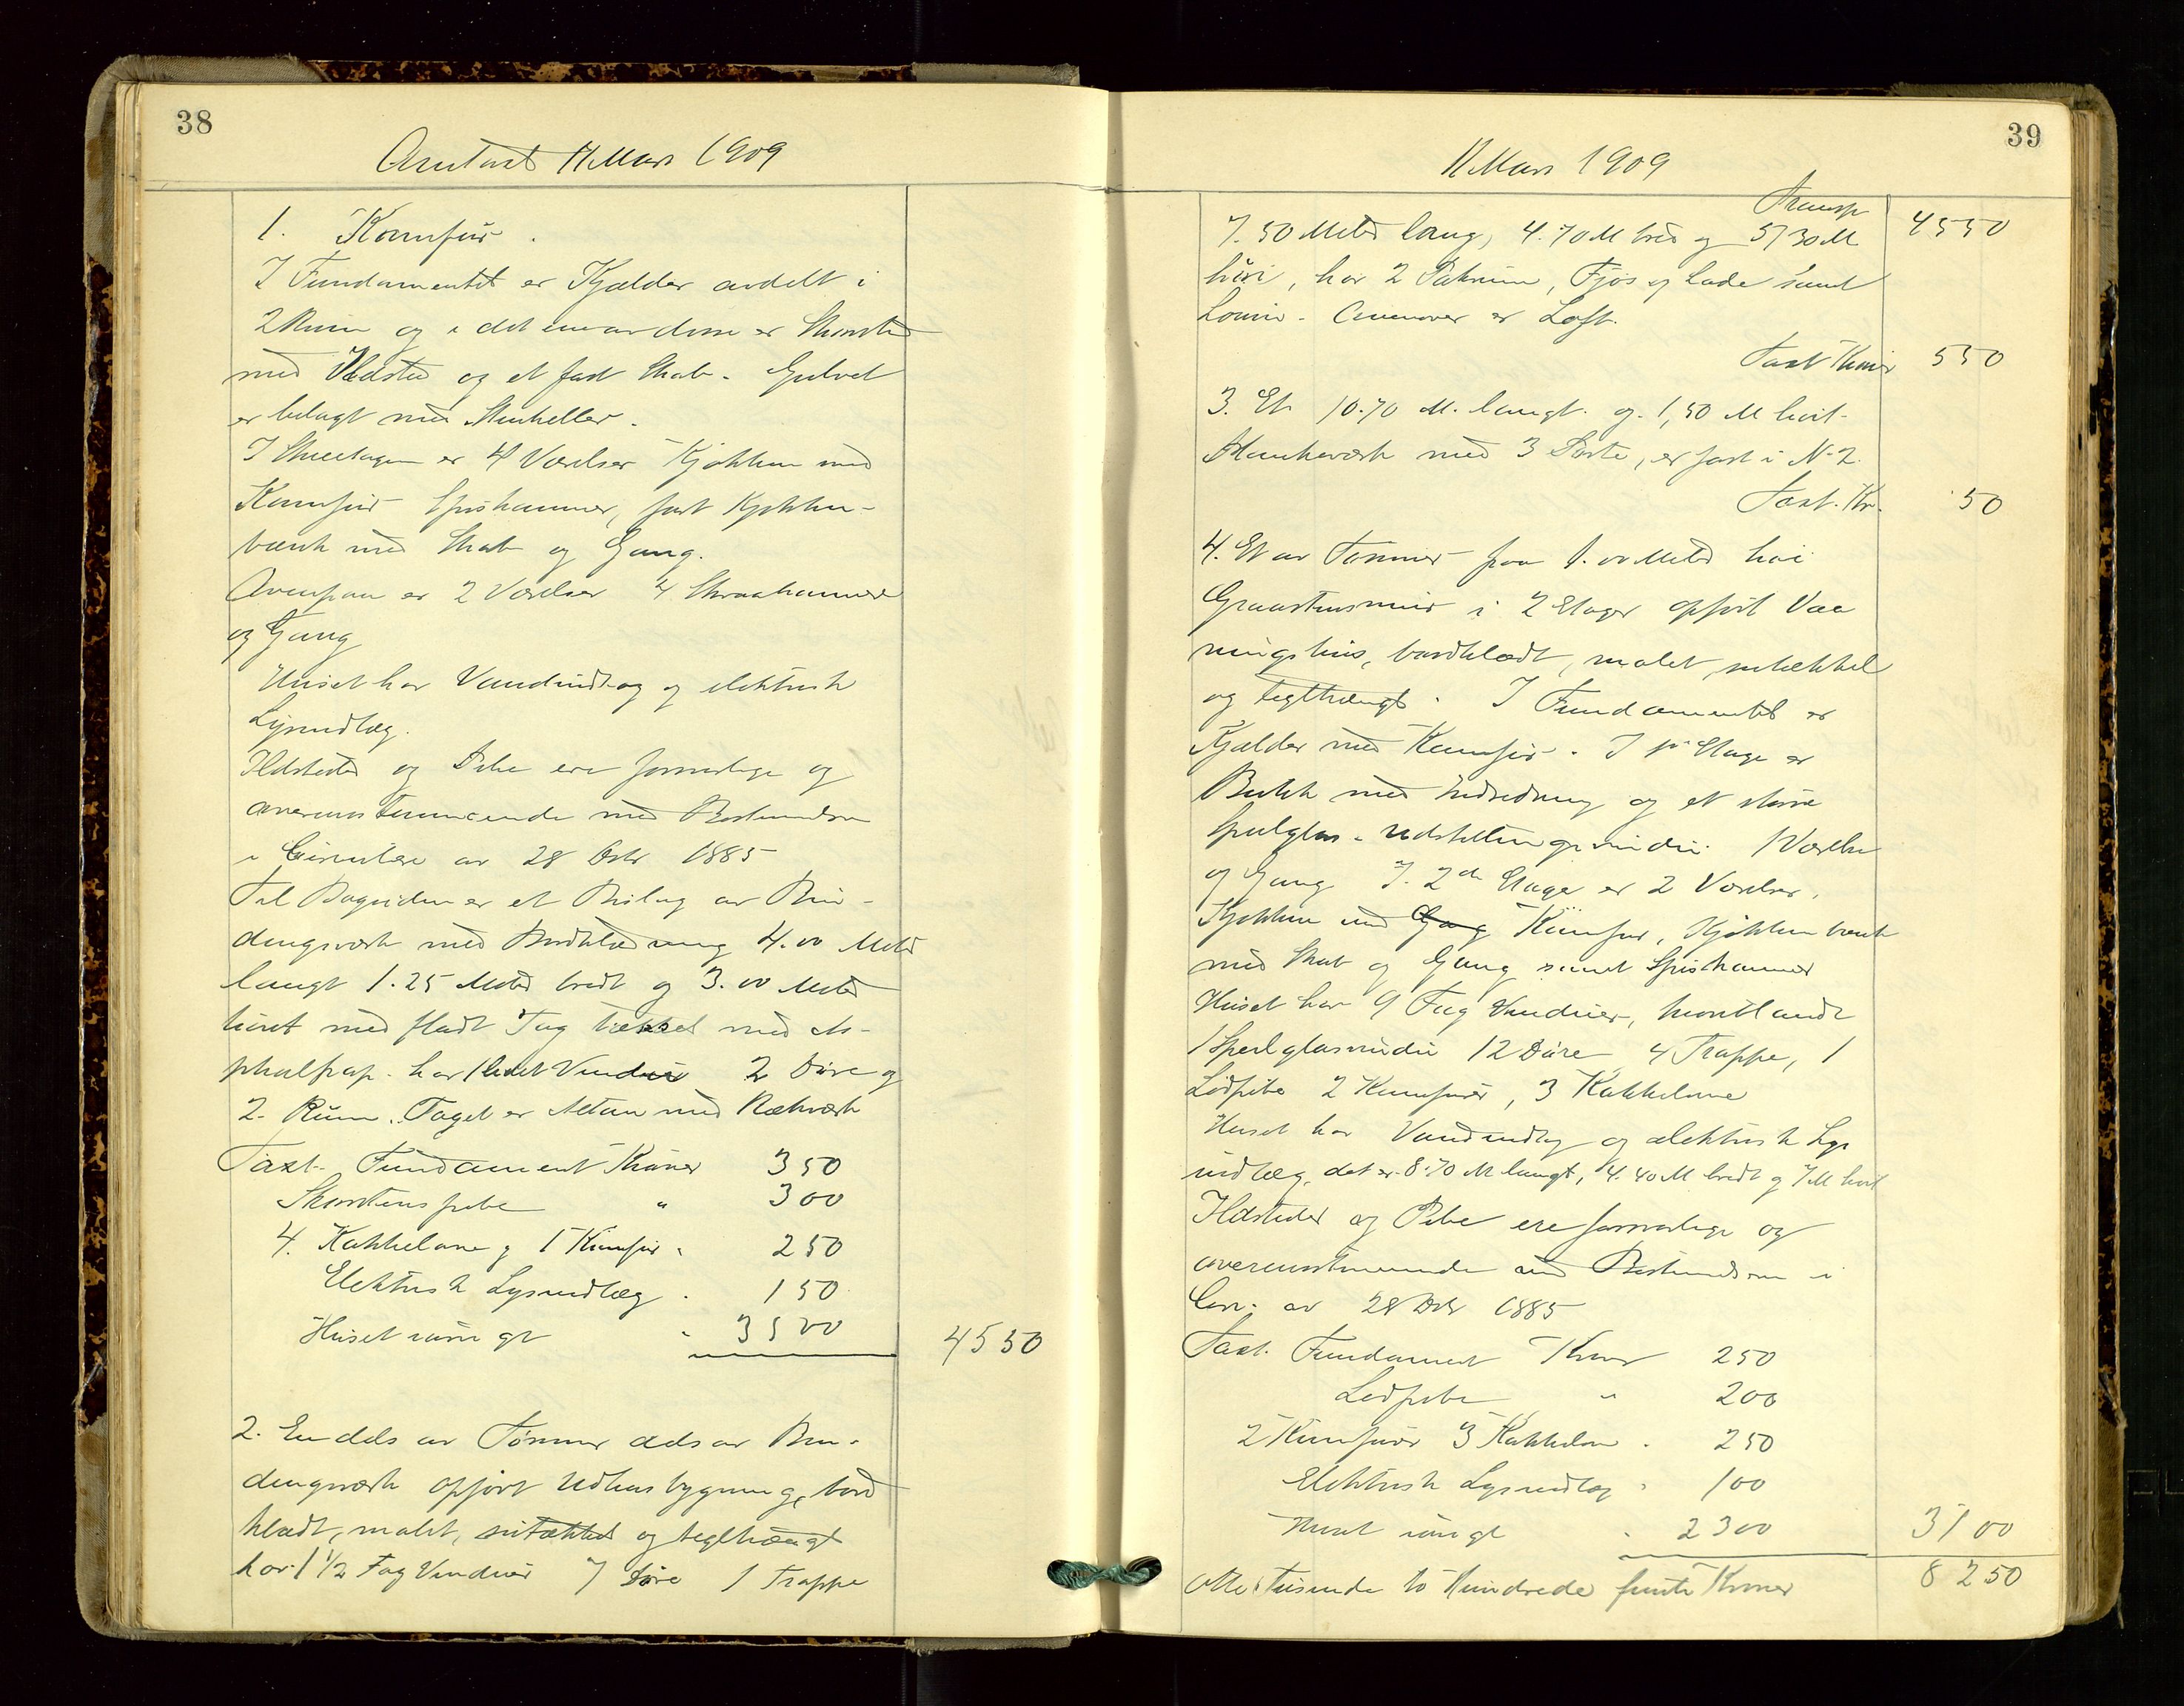 38
Omtaxt 11 Mars 1909
1. Komfur.
I Fundamentet er Kjælder avdelt i
2 Rum og i det ene av disse er Skorsten
med Ildsted og et fast Skab. Gulvet
er belagt med Stenheller.
I Stueetagen er 4 Værelser Kjøkken med
Komfur Spiskammer, fast Kjøkken-
bænk med Skab og Gang.
Ovenpaa er 2 Værelser 4 Skraakammere
og Gang
Huset har Vandindlæg og elektrisk
Lysindlæg.
Ildsteder og Pibe ere forsvarlige og
overensstemmende med Bestemmelserne
i Cirkulære av 28 Octr 1885
Til Bagsiden er et Bislag av Bin-
dingsværk med Bordklædning 4.00 Meter
langt 1.25 Meter bredt og 3.00 Meter
høit med fladt Tag tækket med As-
phaltpap. har 1 lidet Vindue 2 Døre og
2. Rum. Taget er Altan med Rækværk
Taxt. Fundament Kroner 350
Skorstenspibe " 300
4. Kakkelovne og 1 Komfur " 250
Elektrisk Lysindlæg " 150
Huset iøvrigt " 3500 4550
2. En dels av Tømmer dels av Bin-
dingsværk opført Udhusbygning, bord
klædt, malt, nætækket og teglhængt
har 1 1/2 Fag Vinduer 7 Døre 1 Trappe
39
11 Mars 1909
Transp 4550
7.50 Meter lang, 4.70 M bred og 5/30 M
høi, har 2 Pakrum, Fjøs og Lade samt
Lovrum. Ovenover er Loft.
Taxt Kroner 550
3. Et 10.70 M. langt og 1,50 M høit
Plankeværk med 3 Porte, er fast i N. 2.
Taxt. Kr. 50
4. Et av Tømmer paa 1.00 Meter høi
Graastensmur i 2 Etager opført Vaa
ningshus, bordklædt, malet, nætækket
og teglhængt. I Fundamentet er
Kjælder med Komfur. I 1ste Etage er
Butik med Indredning og et større
Speilglas-Udstillingsvindu 1 Værelse
og Gang I. 2den Etage er 2 Værelser,
Kjøkken med Gang Komfur, Kjøkkenbænk
med Skab og Gang samt Spiskammer
Huset har 9 Fag Vinduer, hvoriblandt
1 Speilglasvindu 12 Døre 4 Trappe, 1
Lødpibe 2 Komfurer, 3 Kakkelovne
Huset har Vandindlæg og elektrisk Lys
indlæg, det er 8.70 M langt, 4.40 M bredt og 7 M høit
Ildsteder og Pibe ere forsvarlige og
overensstemmende med Bestemmelserne i
Circ. av 28 Octr 1885
Taxt. Fundament Kroner 250
Lødpibe " 200
2 Komfurer 3 Kakkelovne " 250
Elektrisk Lysindlæg " 100
Huset iøvrigt " 2300 3100
Otte Tusende to Hundrede femti Kroner 8250